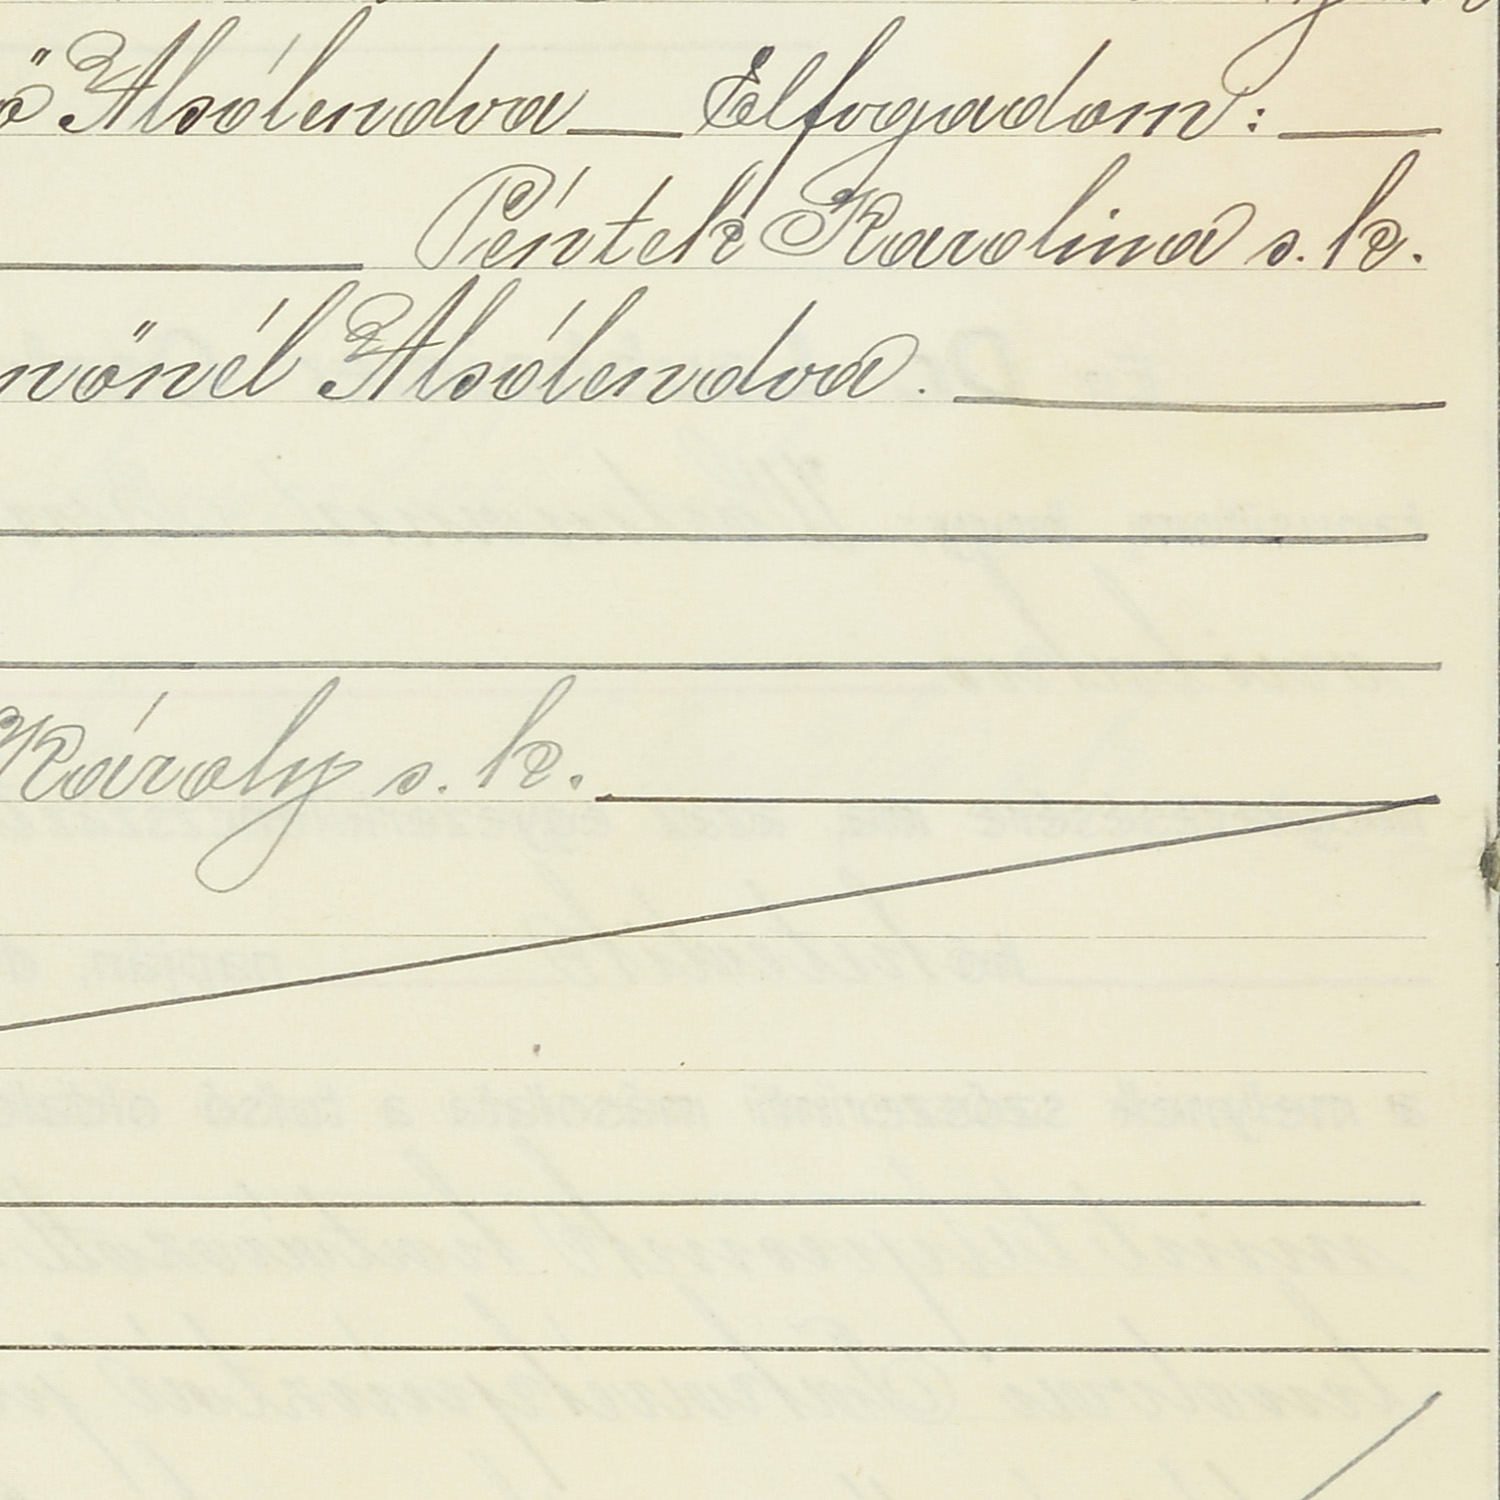 ő Alsólendva Elfogadom:
Péntek Karolina s. k.
nőnél Alsólendva.
Károly s. k.